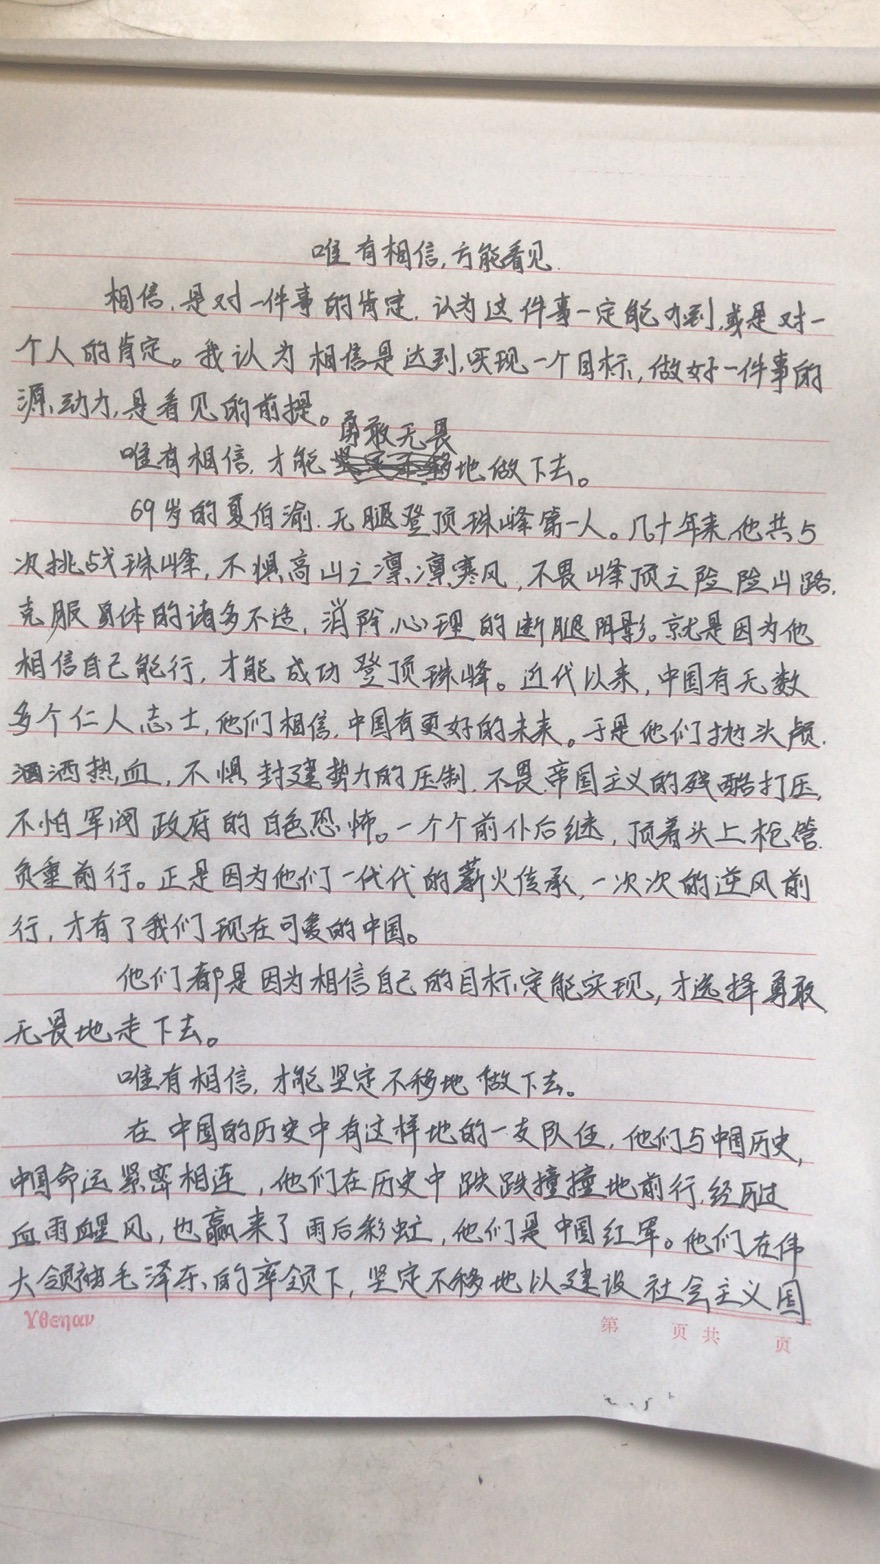 唯有相信,方能看见.
相信,是对一件事的肯定,认为这件事一定能办到,或是对一
个人的肯定。我认为相信是达到,实现一个目标,做好一件事的
源动力,是看见的前提。
勇敢无畏
唯有相信,才能地做下去。
69岁的夏伯渝,无腿登顶珠峰第一人。几十年来,他共5
次挑战珠峰,不惧高山之凛凛寒风,不畏峰顶之险险山路,
克服身体的诸多不适,消除心理的断腿阴影。就是因为他
相信自己能行,才能成功登顶珠峰。近代以来,中国有无数
多个仁人志士,他们相信,中国有更好的未来。于是他们抛头颅,
洒热血,不惧封建势力的压制,不畏帝国主义的残酷打压,
不怕军阀政府的白色恐怖。一个个前仆后继,顶着头上枪管,
负重前行。正是因为他们一代代的薪火传承,一次次的逆风前
行,才有了我们现在可爱的中国。
他们都是因为相信自己的目标定能实现,才选择勇敢
无畏地走下去。
唯有相信,才能坚定不移地做下去。
在中国的历史中有这样地的一支队伍,他们与中国历史,
中国命运紧密相连,他们在历史中跌跌撞撞地前行,经历过
血雨腥风,也赢来了雨后彩虹,他们是中国红军。他们在伟
大领袖毛泽东的率领下,坚定不移地以建设社会主义国
Yθεηαν
第 页 共 页